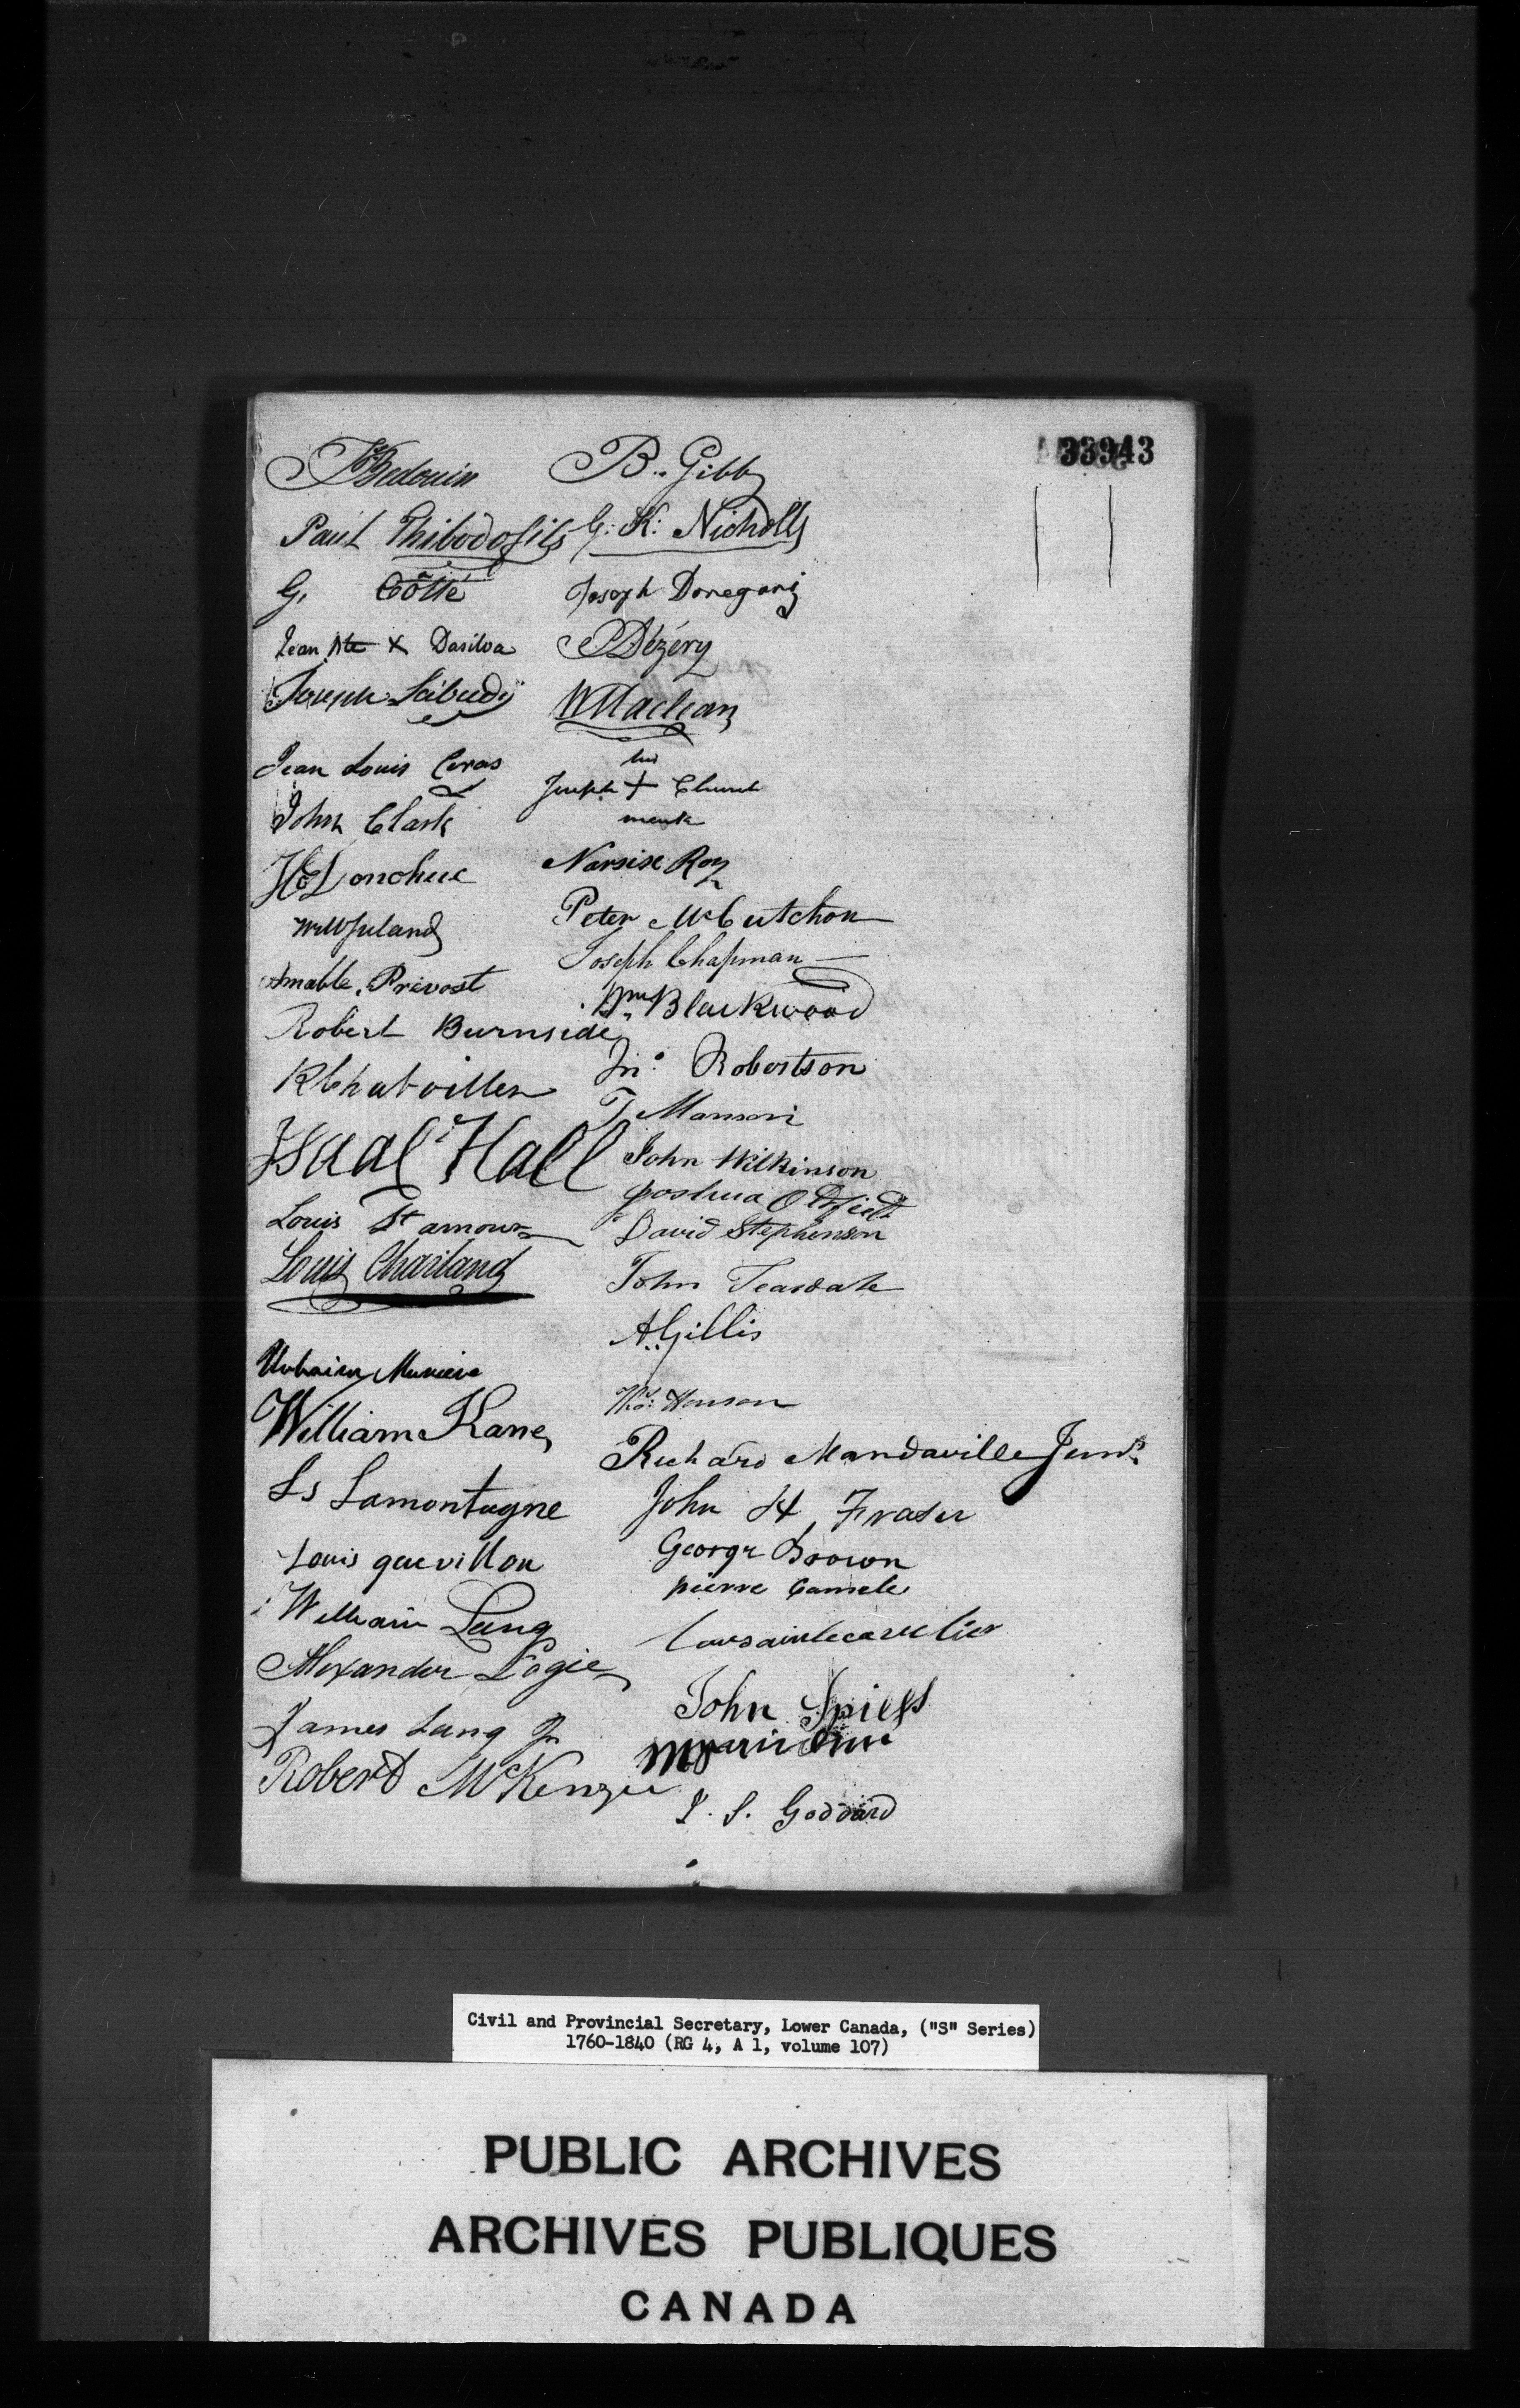 33943
Bedouin
Paul Thibodo fils
G. Côtté
Jean Bte X Dasilva
Joseph
Jean Louis Ceras
John Clark
H Donohue
Amable Prévost
Robert Burnside
Isaac Hall
Louis St amour
Louis Charland
Urbain
William Kane
Ls Lamontagne
Louis quevillon
William Lang
Alexander Logie
James Lang Jr
Robert McKenzie
B. Gibb
G. K. Nicholls
Joseph Donegani
Dézéry
W Maclean
his
Joseph + Church
mark
Narsise Roy
Peter McCutchon
Joseph Chapman
Wm Blackwood
Jno. Robertson
T Manson
John Wilkinson
Joshua Oldfield
David Stephenson
John Teasdale
A. Gillis
Thos. Henson
Richard Mandaville Junr.
John H. Fraser
George Brown
pierre
John Spiess
J. S. Goddard
Civil and Provincial Secretary, Lower Canada, ("S" Series)
1760-1840 (RG 4, A 1, volume 107)
PUBLIC ARCHIVES
ARCHIVES PUBLIQUES
CANADA